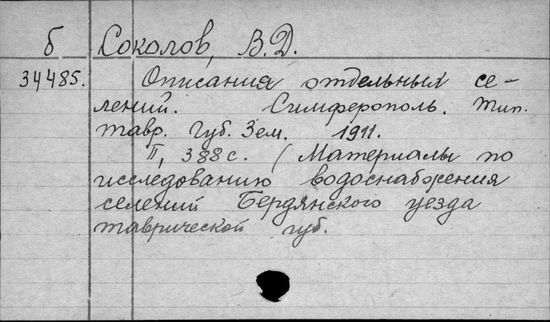 б Соколов, В.Д.
34485. Описания отдельных се-
лений. Симферополь. Тип.
Тавр. Губ. Зем. 1911.
II, 388 с. (Материалы по
исследованию водоснабжения
селений Бердянского уезда
таврической губ.